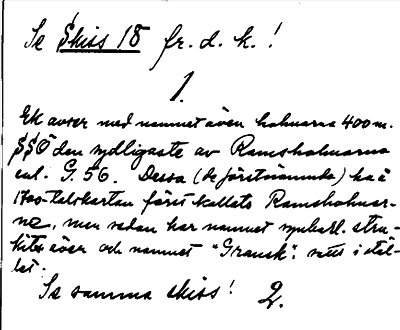 Se Skiss 18 fr. d. k. !
1.
Ek avser med namnet även holmarna 400 m.
SSO den sydligaste av Ramsholmarna
enl. G. 56. Dessa (de förstnämnda) ha å
1700-talskartan först kallats Ramsholmar-
na, men sedan har namnet synbarl. stru-
kits över och namnet "Gransk". satts i stäl-
let.
Se samma skiss! 2.